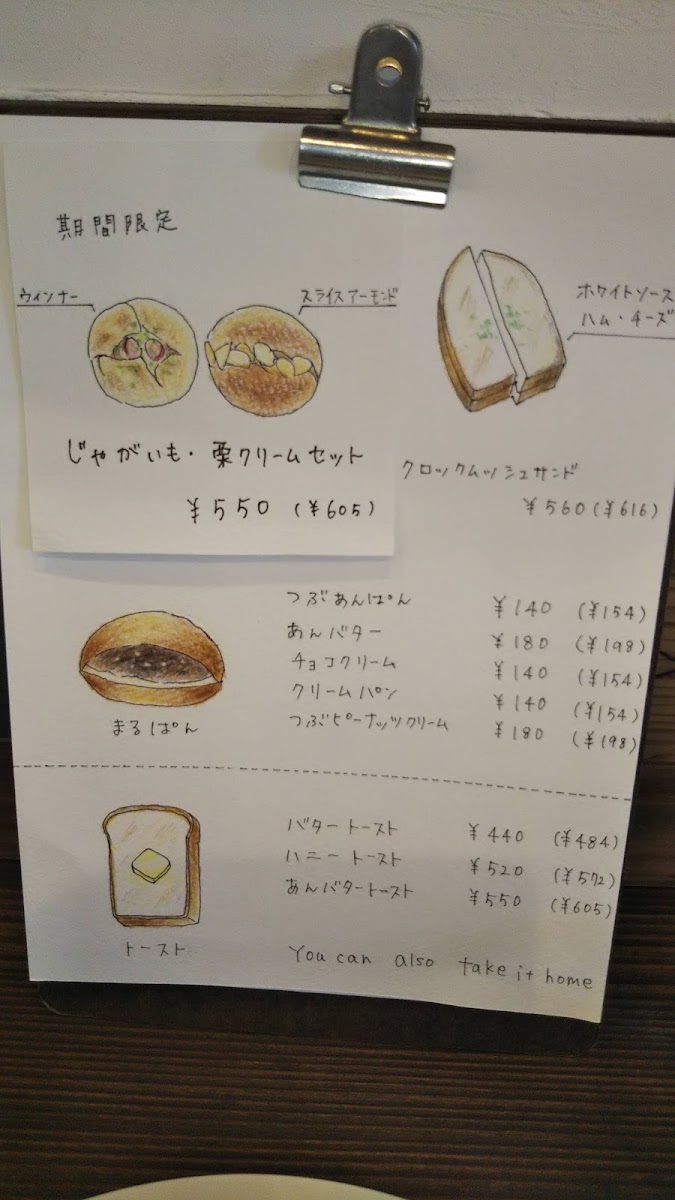 期間限定
ウィンナー
スライスアーモンド
じゃがいも・栗クリームセット
¥550 (¥605)
ホワイトソース
ハム・チーズ
クロックムッシュサンド
¥560(¥616)
まるぱん
つぶあんぱん ¥140 (¥154)
あんバター ¥180 (¥198)
チョコクリーム ¥140 (¥154)
クリームパン ¥140 (¥154)
つぶピーナッツクリーム ¥180 (¥198)
トースト
バタートースト ¥440 (¥484)
ハニートースト ¥520 (¥572)
あんバタートースト ¥550 (¥605)
You can also take it home